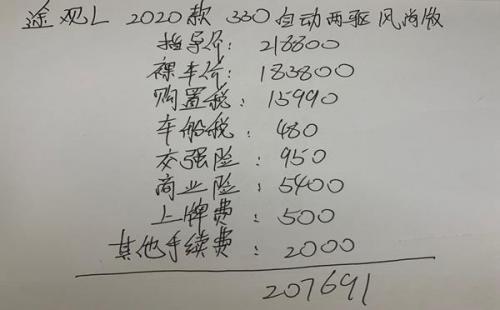 途观L 2020款 330自动两驱风尚版
指导价: 218800
裸车价: 183800
购置税: 15990
车船税: 480
交强险: 950
商业险: 5400
上牌费: 500
其他手续费: 2000
207691